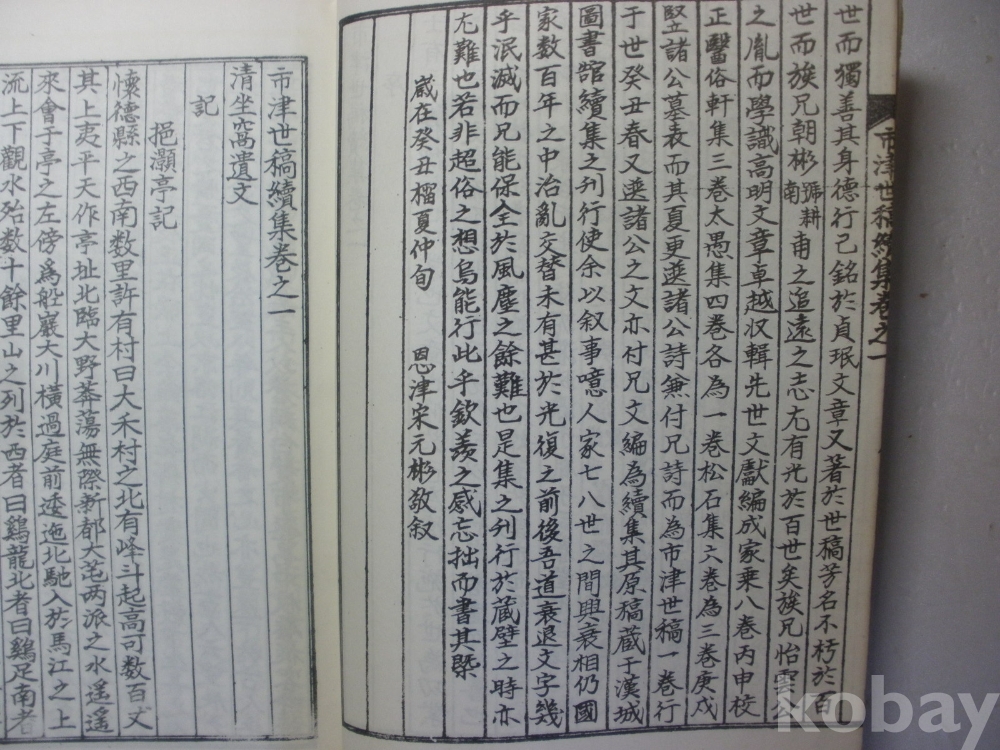 世而獨善其身德行已銘於貞珉文章又著於世稿芳名不朽於百
世而族兄朝彬號耕南甫之追遠之志尤有光於百世矣族兄怡雲公
之胤而學識高明文章卓越収輯先世文獻編成家乗八卷丙申校
正醫俗軒集三卷太愚集四卷各為一卷松石集六卷為三卷庚戌
竪諸公墓表而其夏更蒐諸公詩兼付兄詩而為市津世稿一卷行
于世癸丑春又蒐諸公之文亦付兄文編為續集其原稿藏于漢城
圖書舘續集之刋行使余以叙事噫人家七八世之間興衰相仍國
家数百年之中治亂交替未有甚於光復之前後吾道衰退文字幾
乎泯滅而兄能保全於風塵之餘難也是集之刋行於蔵壁之時亦
尤難也若非超俗之想烏能行此乎欽羨之感忘拙而書其槩
歲在癸丑榴夏仲旬 恩津宋元彬敬叙
市津世稿續集卷之一
市津世稿續集卷之一
清坐窩遺文
記
挹灝亭記
懷德縣之西南数里許有村曰大禾村之北有峰斗起高可数百丈
其上夷平天作亭址北臨大野莽蕩無際新都大芚两派之水遥遥
來會于亭之左傍爲船巖大川橫過庭前逶迤北馳入於馬江之上
流上下觀水殆数十餘里山之列於西者曰鷄龍北者曰鷄足南者
kobay